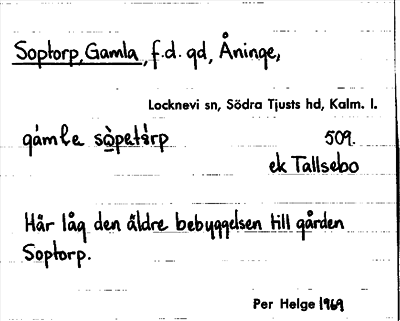 Soptorp, Gamla, f.d. gd, Åninge,
Locknevi sn, Södra Tjusts hd, Kalm. l.
gámle sòpetàrp 509.
ek Tallsebo
Här låg den äldre bebyggelsen till gården
Soptorp.
Per Helge 1969